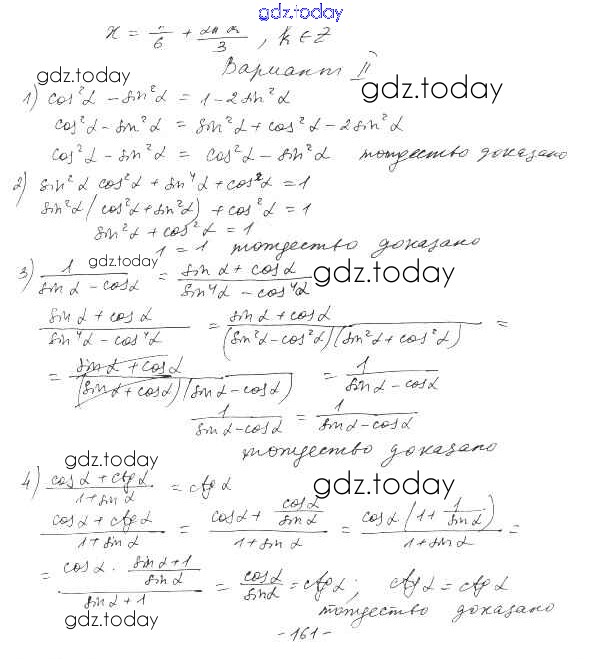 gdz.today
x = π/6 + 2πk/3, k ∈ Z
Вариант II
gdz.today gdz.today
1) cos²α - sin²α = 1 - 2sin²α
cos²α - sin²α = sin²α + cos²α - 2sin²α
cos²α - sin²α = cos²α - sin²α тождество доказано
2) sin²α cos²α + sin⁴α + cos²α = 1
sin²α (cos²α + sin²α) + cos²α = 1
sin²α + cos²α = 1
1 = 1 тождество доказано
gdz.today gdz.today
3) 1/(sin α - cos α) = (sin α + cos α)/(sin⁴α - cos⁴α)
(sin α + cos α)/(sin⁴α - cos⁴α) = (sin α + cos α)/((sin²α - cos²α)(sin²α + cos²α)) =
= (sin α + cos α)/((sin α + cos α)(sin α - cos α)) = 1/(sin α - cos α)
1/(sin α - cos α) = 1/(sin α - cos α)
тождество доказано
gdz.today gdz.today
4) (cos α + ctg α)/(1 + sin α) = ctg α
(cos α + ctg α)/(1 + sin α) = (cos α + cos α/sin α)/(1 + sin α) = (cos α (1 + 1/sin α))/(1 + sin α) =
= (cos α · (sin α + 1)/sin α)/(sin α + 1) = cos α/sin α = ctg α; ctg α = ctg α
тождество доказано
gdz.today
- 161 -